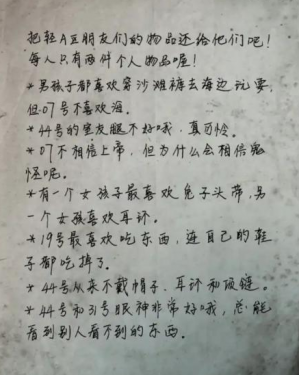 把轻A豆朋友们的物品还给他们吧!
每人只有两件个人物品喔!
*男孩子都喜欢穿沙滩裤去海边玩耍,
但07号不喜欢海。
*44号的室友腿不好哦,真可怜。
*07不相信上帝,但为什么会相信鬼
怪呢。
*有一个女孩子最喜欢兔子头带,另
一个女孩喜欢耳环。
*19号最喜欢吃东西,连自己的鞋
子都吃掉了。
*44号从来不戴帽子、耳环和项链。
*44号和31号眼神非常好哦,总能
看到别人看不到的东西。